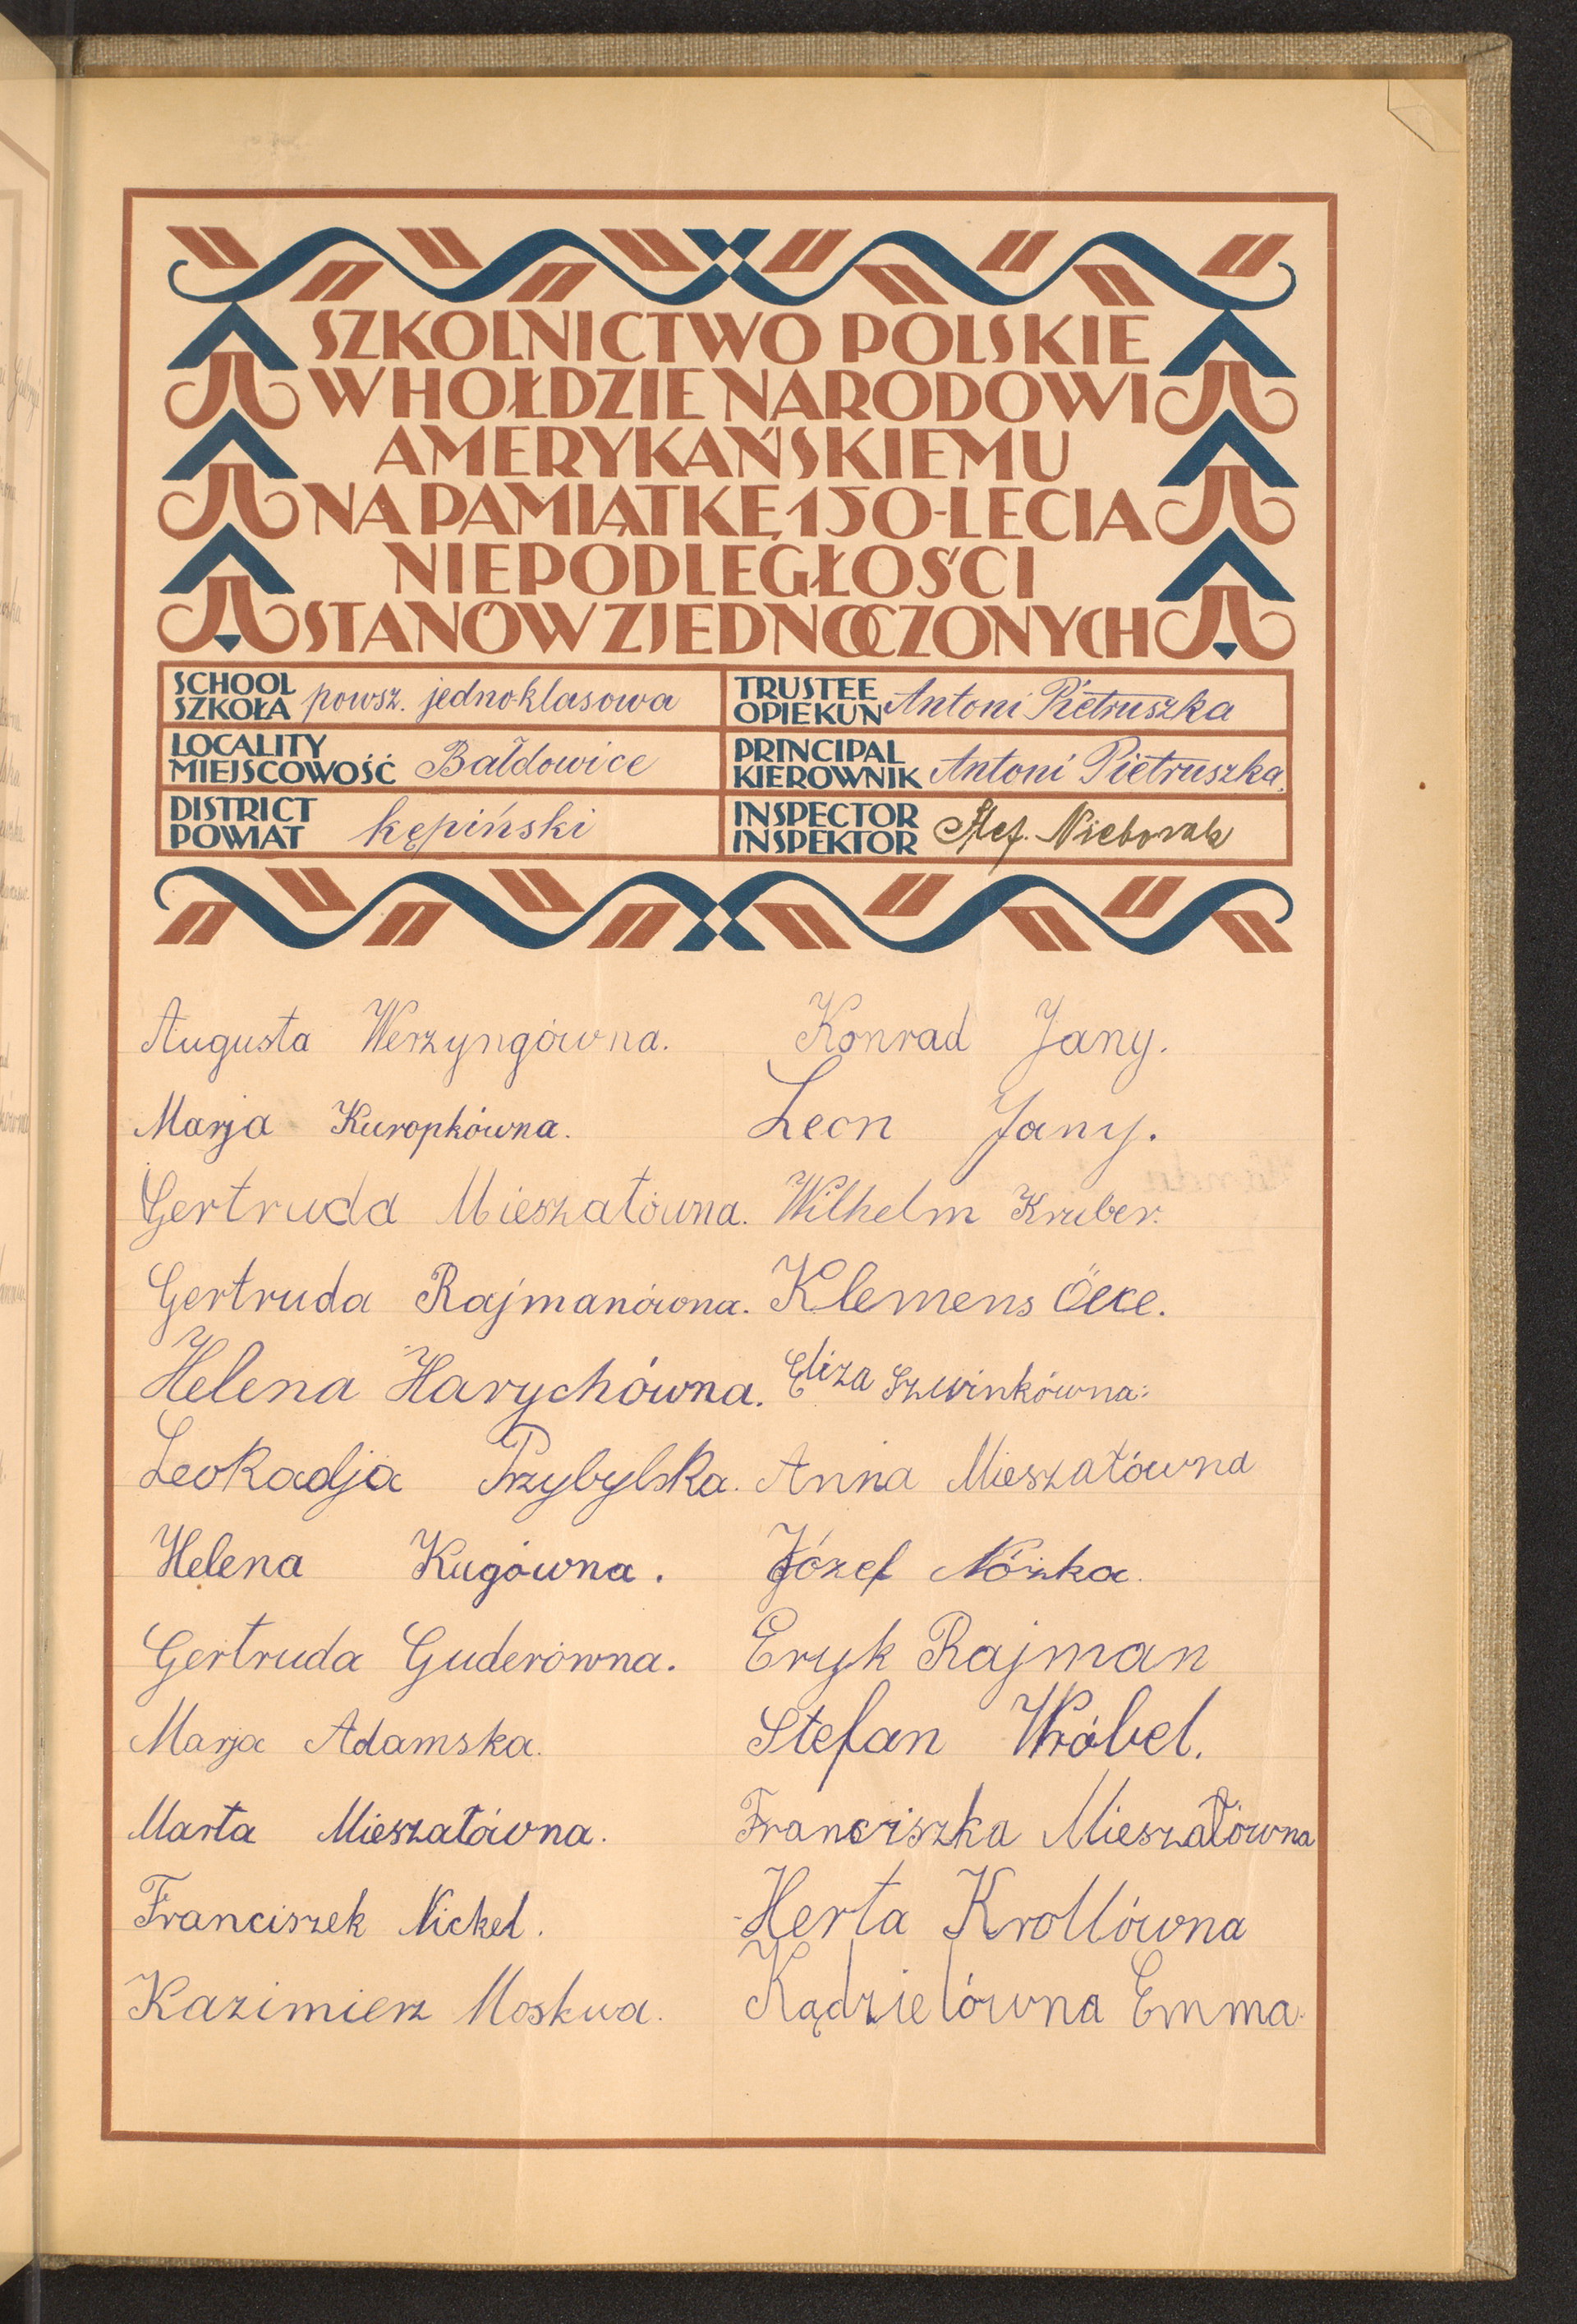 SZKOLNICTWO POLSKIE
W HOŁDZIE NARODOWI
AMERYKAŃSKIEMU
NA PAMIĄTKĘ 150-LECIA
NIEPODLEGŁOŚCI
STANÓW ZJEDNOCZONYCH
SCHOOL
SZKOŁA powsz. jedno-klasowa
TRUSTEE
OPIEKUN Antoni Pietruszka
LOCALITY
MIEJSCOWOŚĆ Bałdowice
PRINCIPAL
KIEROWNIK Antoni Pietruszka.
DISTRICT
POWIAT kępiński
INSPECTOR
INSPEKTOR Stef. Nieborak
Augusta Werzyngówna.
Marja Kuropkówna.
Gertruda Mieszałówna.
Gertruda Rajmanówna.
Helena Harychówna.
Leokadja Przybylska.
Helena Kugówna.
Gertruda Guderówna.
Marja Adamska.
Marta Mieszałówna.
Franciszek Nickel.
Kazimierz Moskwa.
Konrad Jany.
Leon Jany.
Wilhelm Kruber.
Klemens
Eliza Szwinkówna.
Anna Mieszałówna
Józef Nóżka.
Eryk Rajman
Stefan Wróbel.
Franciszka Mieszałówna
Herta Krollówna
Kądzielówna Emma.